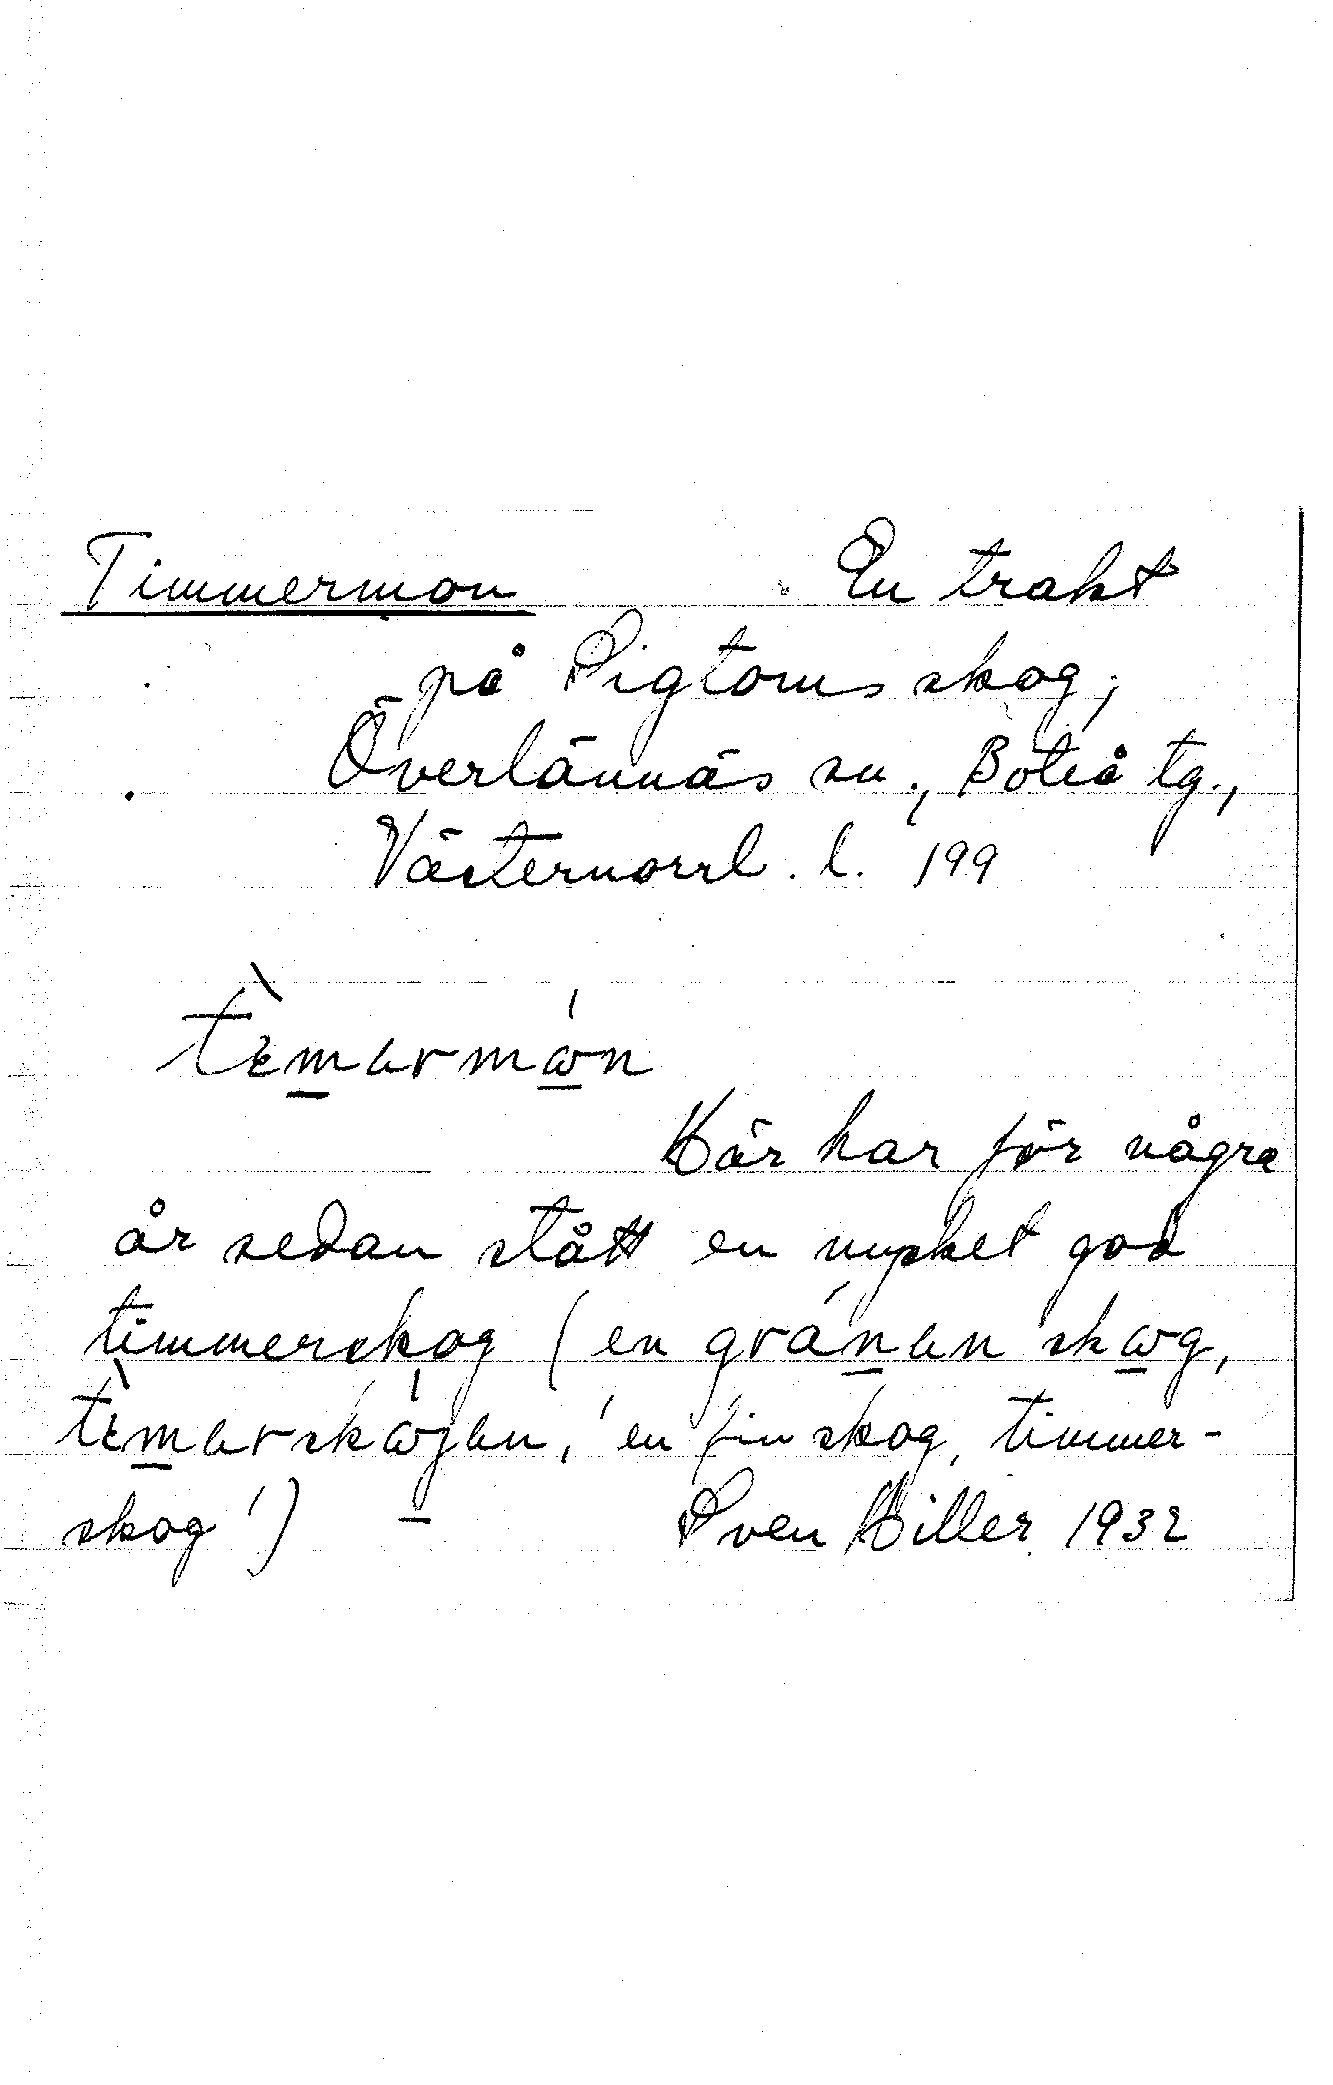 Timmermon En trakt
på Sigtoms skog,
Överlännäs sn., Boteå tg.,
Västernorrl. l. 199
tèmarmón
Här har för några
år sedan stått en mycket god
timmerskog (en gránan skog,
tèmarskójan, 'en fin skog, timmer-
skog')
Sven Hiller 1932